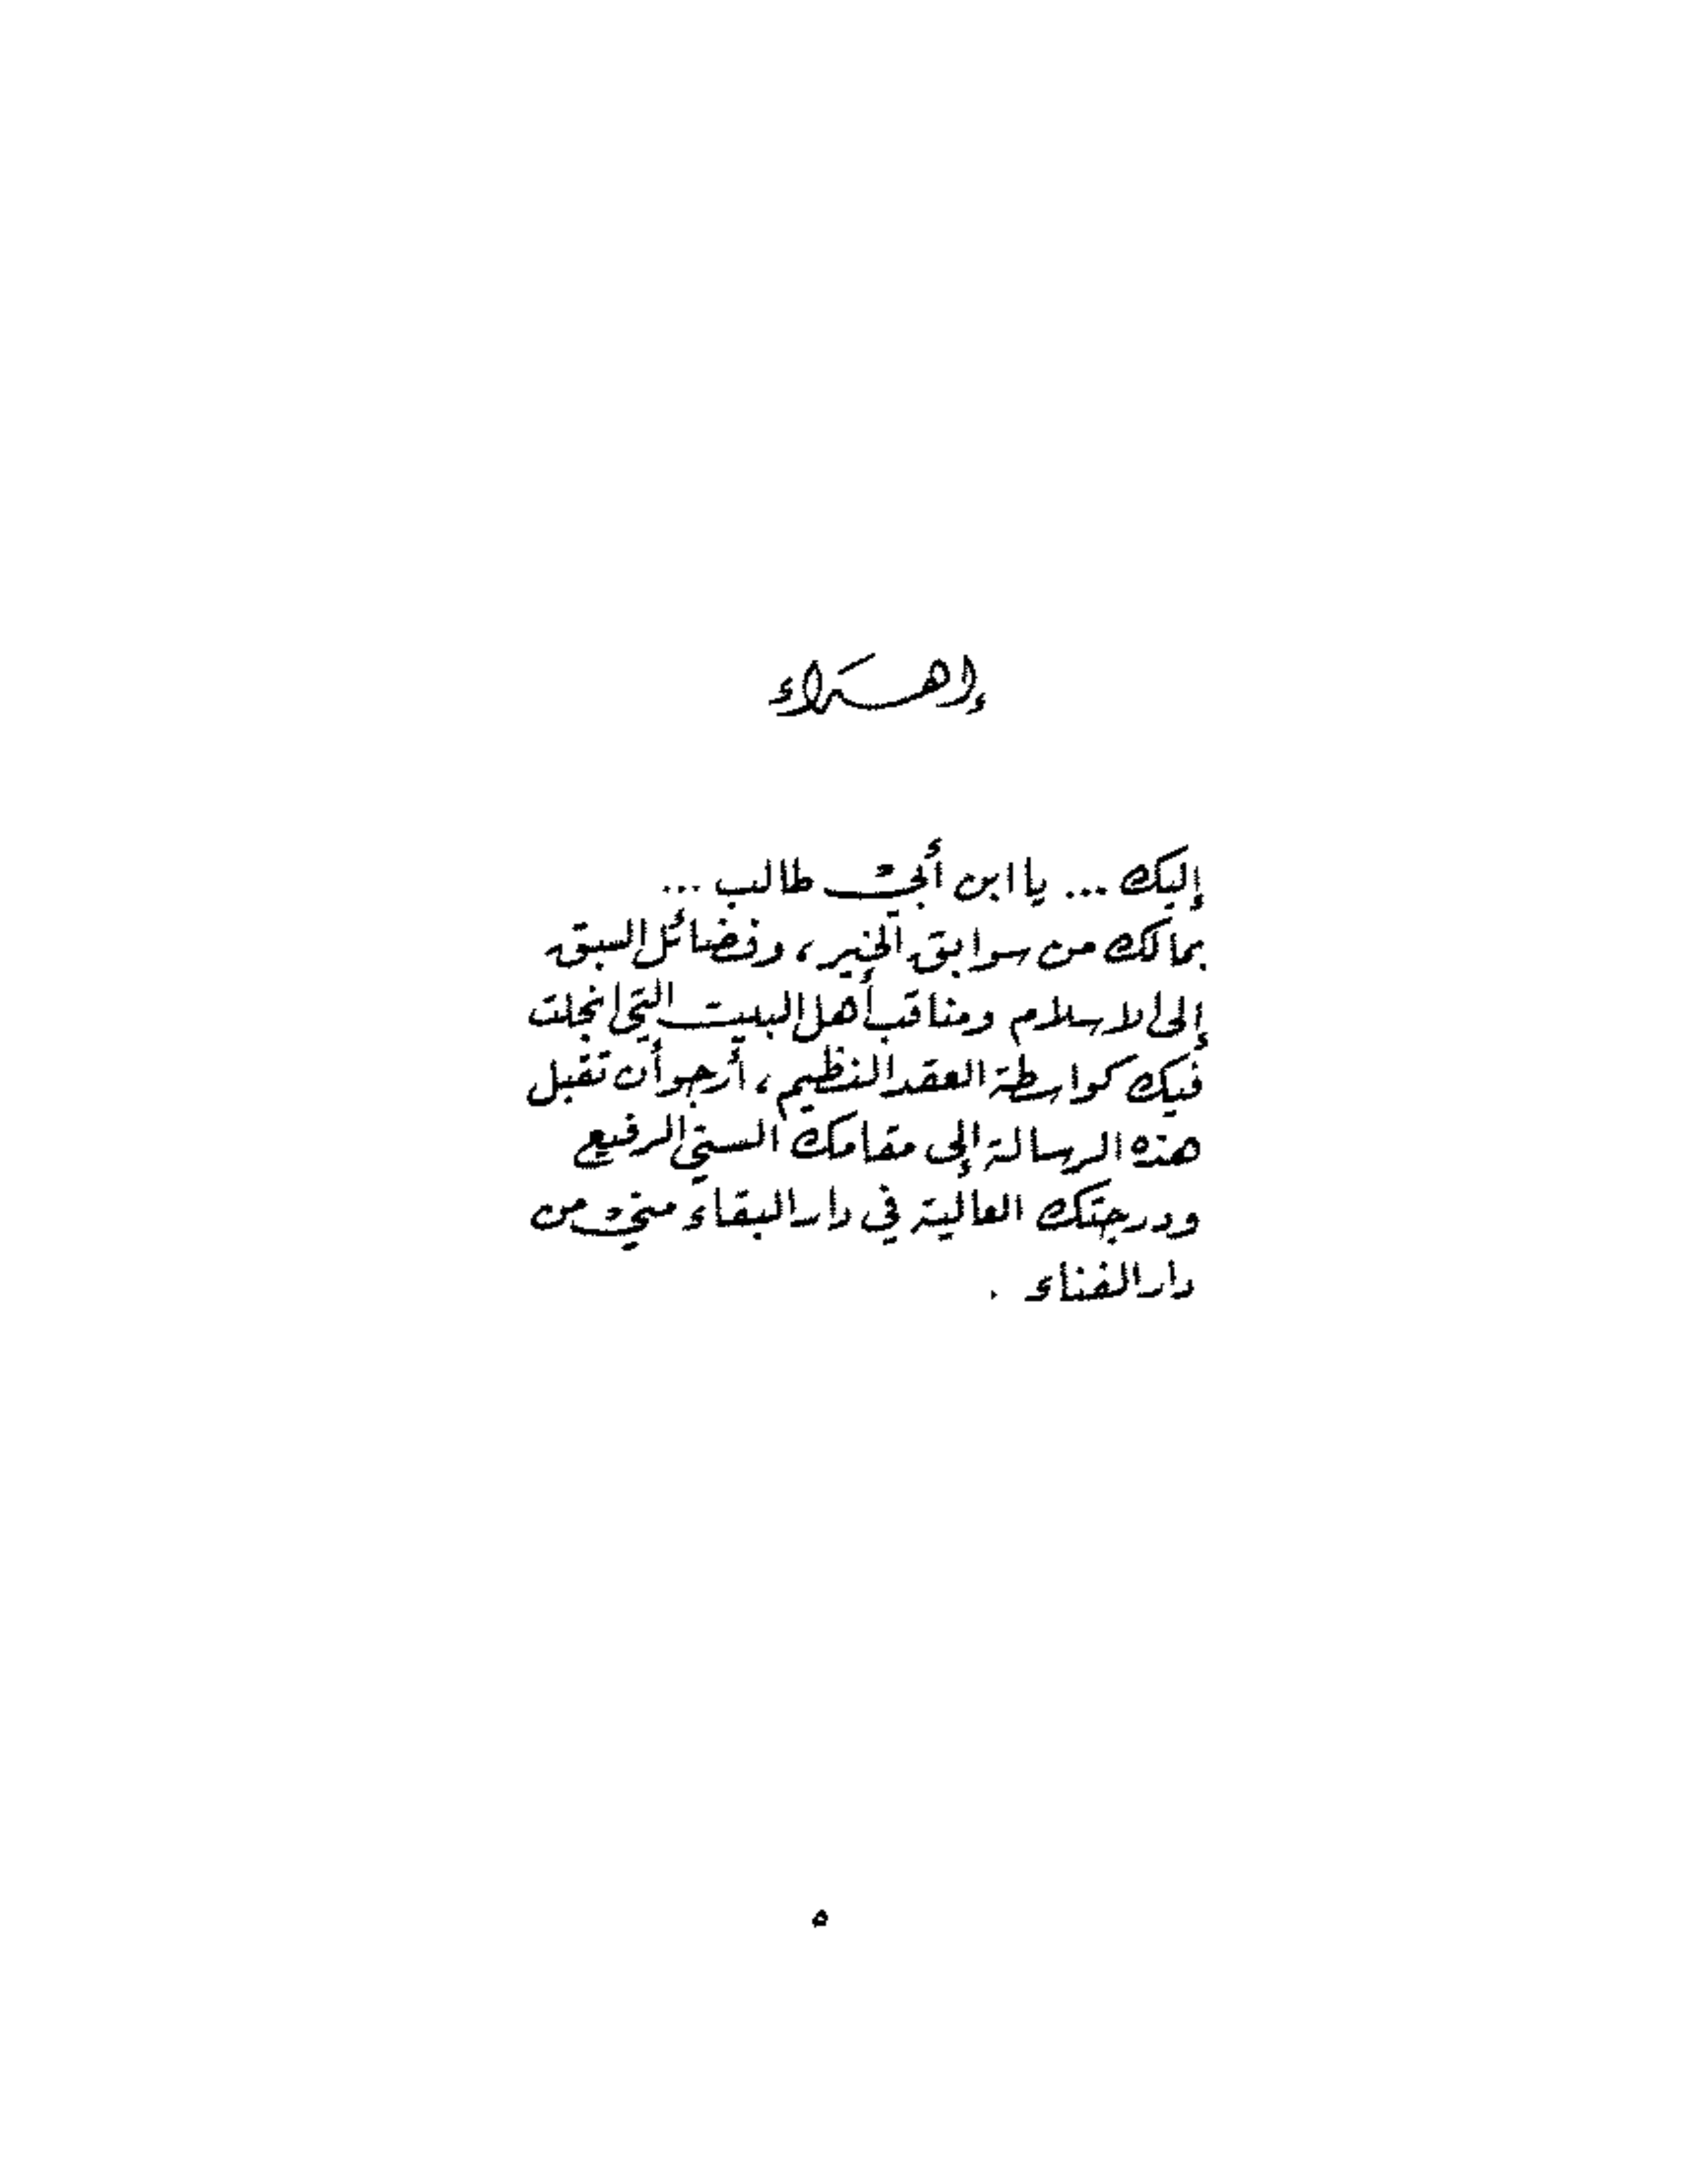 إهداء
إليك ... يا ابن أبي طالب ...
بمالك من سوابق الخير ، وفضائل السبق
إلى الاسلام ومناقب أهل البيت التي انجلت
فيك كواسطة العقد النظيم ، أرجو أن تقبل
هذه الرسالة إلى مقامك السني الرفيع
ودرجتك العالية في دار البقاء مني من
دار الفناء .
٥